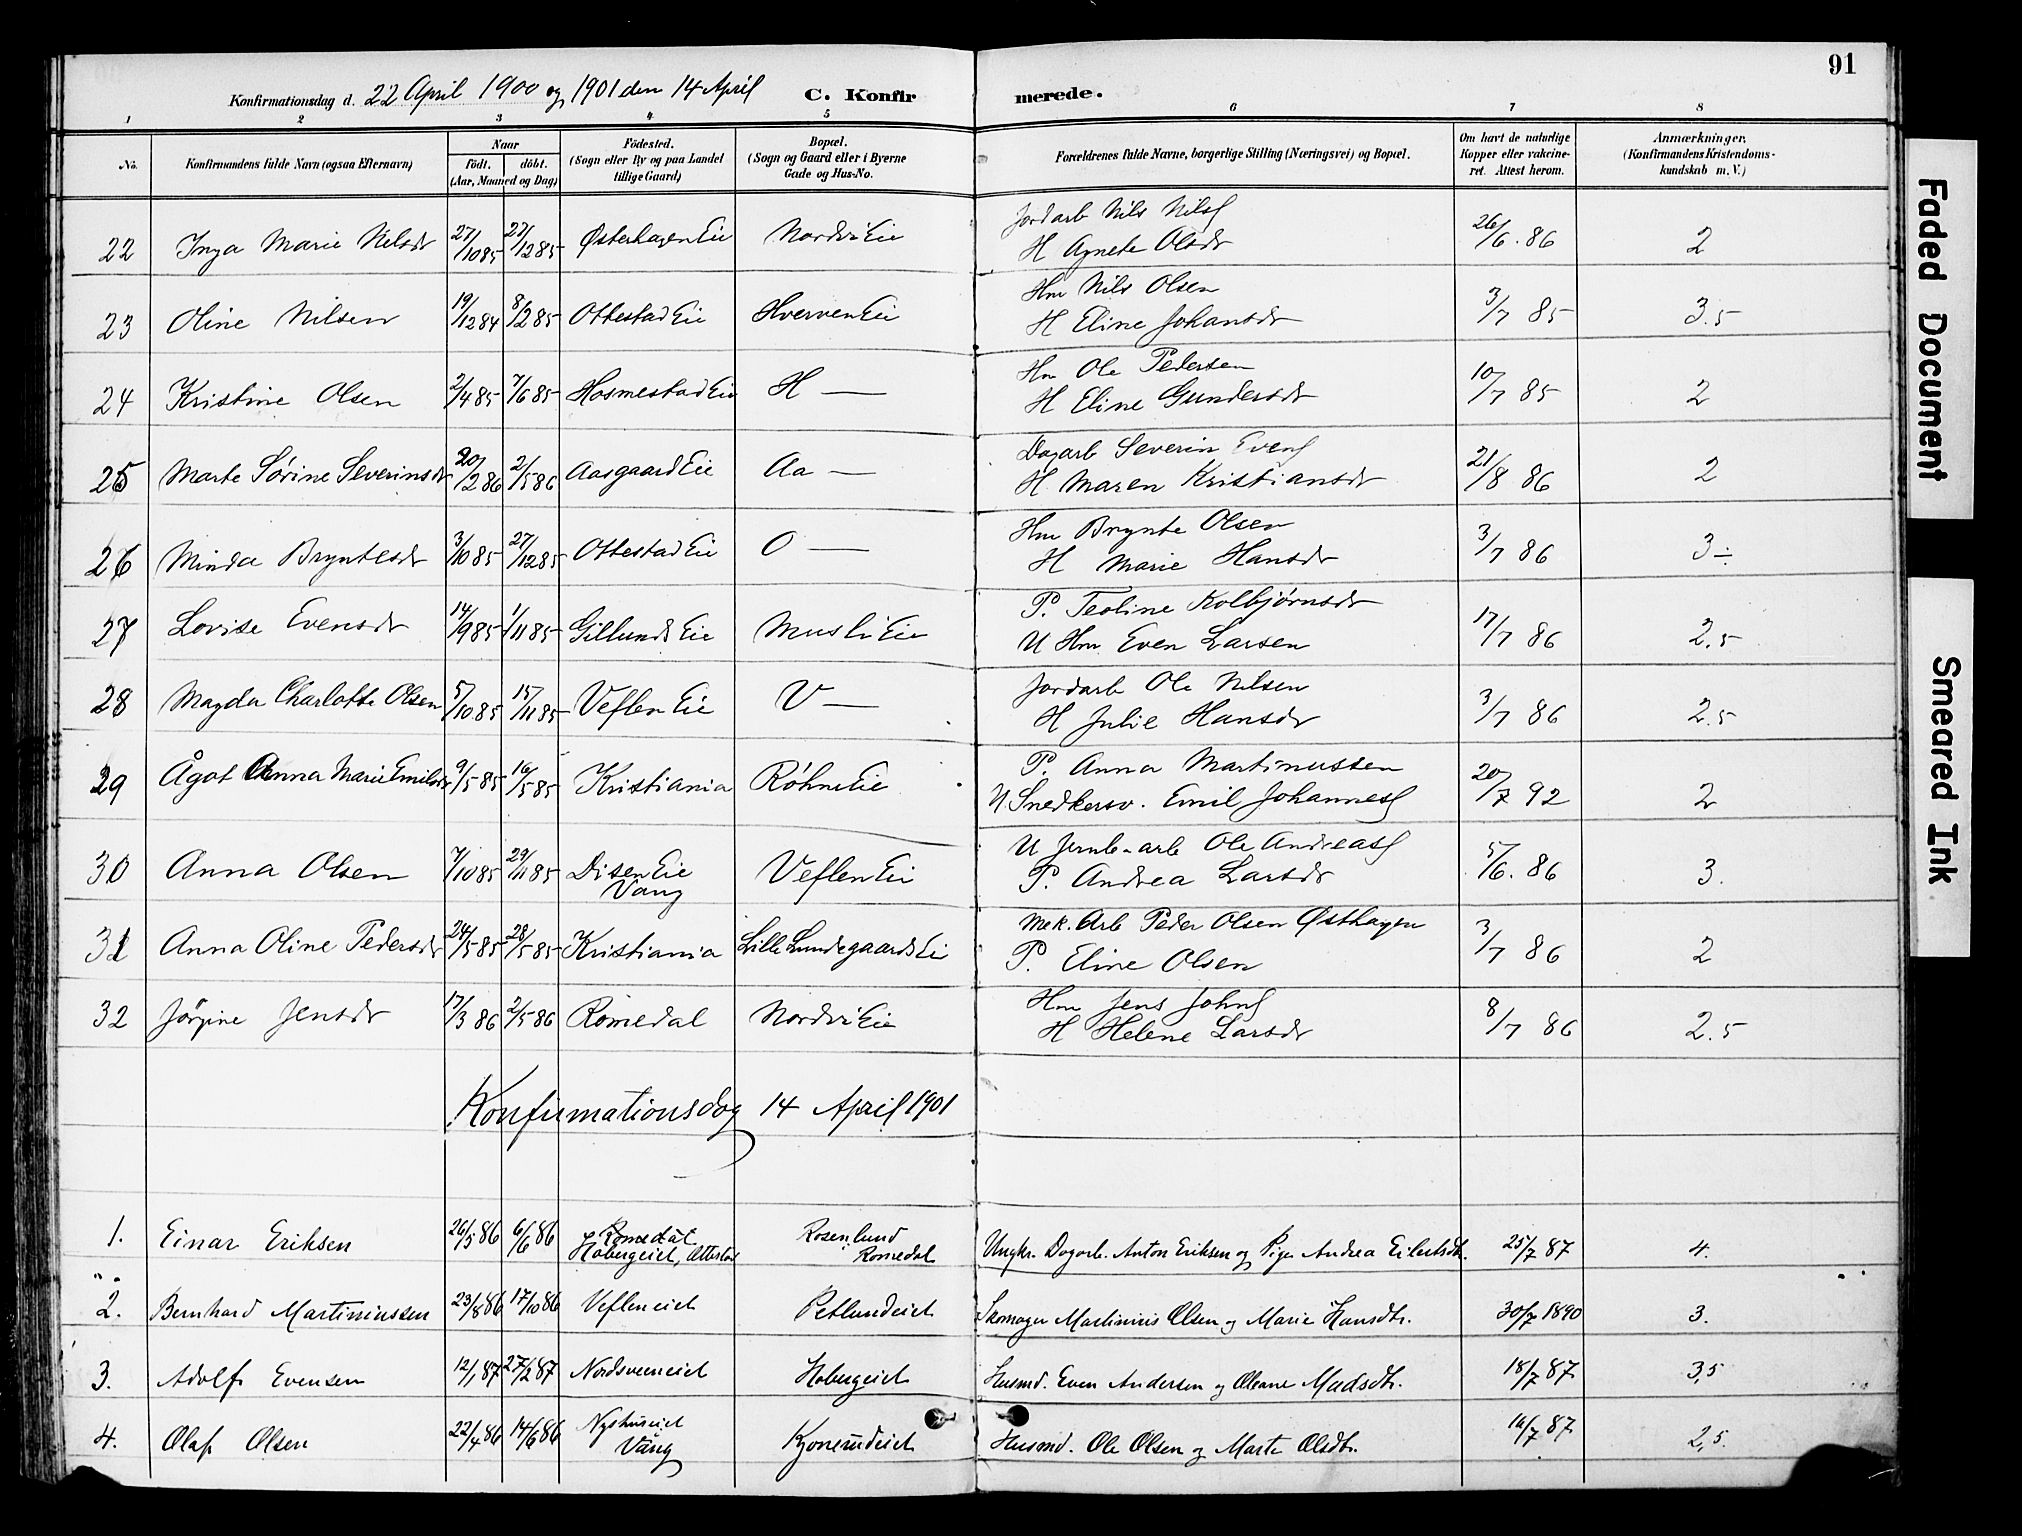 91
Konfirmationsdag d. 22 April 1900 og 1901 den 14 April C. Konfirmerede.
1 2 3 4 5 6 7 8
No. Konfirmandens fulde Navn (ogsaa Efternavn) Naar født. døbt. (Aar, Maaned og Dag) Fødested. (Sogn eller By og paa Landet tillige Gaard) Bopæl. (Sogn og Gaard eller i Byerne Gade og Hus-No. Forældrenes fulde Navne, borgerlige Stilling (Næringsvei) og Bopæl. Om havt de naturlige Kopper eller vakcineret. Attest herom. Anmærkninger. (Konfirmandens Kristendomskundskab m. V.)
22 Inga Marie Nilsdr 27/10 85 27/12 85 Østerhagen Eie Nordvi Eie Jordarb Nils Nils
H Agnete Olsdr 26/6. 86 2
23 Oline Nilsen 19/12 84 8/2 85 Ottestad Eie Hverven Eie Hm Nils Olsen
H Eline Johansdr 3/7 85 3.5
24 Kristine Olsen 2/4 85 7/6 85 Hosmestad Eie H — Hm Ole Pedersen
H Eline Gundersdr 10/7 85 2
25 Marte Sørine Severinsdr 20/2 86 2/5 86 Aasgaard Eie Aa — Dagarb Severin Evens
H Maren Kristiansdr 21/8 86 2
26 Minda Bryntesdr 3/10 85 27/12 85 Ottestad Eie O — Hm Brynte Olsen
H Marie Hansdr 3/7 86 3 ÷
27 Lovise Evensdr 14/9 85 1/11 85 Gillunds Eie Musli Eie P. Teoline Kolbjørnsdr
U Hm Even Larsen 17/7 86 2.5
28 Magda Charlotte Olsen 5/10 85 15/11 85 Veflen Eie V — Jordarb Ole Nilsen
H Julie Hansdr 3/7 86 2.5
29 Ågot Anna Marie Emilsdr 9/5 85 16/5 85 Kristiania Røhne Eie P. Anna Martinussen
U. Snedkersv. Emil Johannes 20/7 92 2
30 Anna Olsen 7/10 85 29/11 85 Disen Eie Vang Veflen Ei U Jernb-arb Ole Andreas
P. Andrea Larsdr 5/6. 86 3.
31 Anna Oline Pedersdr 24/5 85 28/5 85 Kristiania Lille Lundegaards Ei Mek. Arb Peder Olsen Østhagen
P. Eline Olsen 3/7 86 2
32 Jørgine Jensdr 17/3 86 2/5 86 Romedal Nordvi Eie Hm Jens Johns
H Helene Larsdr 8/7 86 2.5
Konfirmationsdag 14 April 1901
1. Einar Eriksen 26/5 86 6/6 86 Romedal Hobergeiet, Ottestad Rosenlund Romedal Ungkr. Dagarb. Anton Eriksen og Pige Andrea Eilertsdtr. 25/7 87 4.
2. Bernhard Martiniussen 23/8 86 17/10 86 Vefleneiet Petlundeiet Skomager Martinius Olsen og Marie Hansdtr. 30/7 1890 3.
3. Adolf Evensen 12/1 87 27/2 87 Nordsveeneiet Hobergeiet Husmd. Even Andersen og Oleane Madsdtr. 18/7 87 3,5
4. Olaf Olsen 22/4 86 14/6 86 Nyshuseiet Vang Kjonerudeiet Husmd. Ole Olsen og Marte Olsdtr. 87 2,5.
Faded Document
Smeared Ink